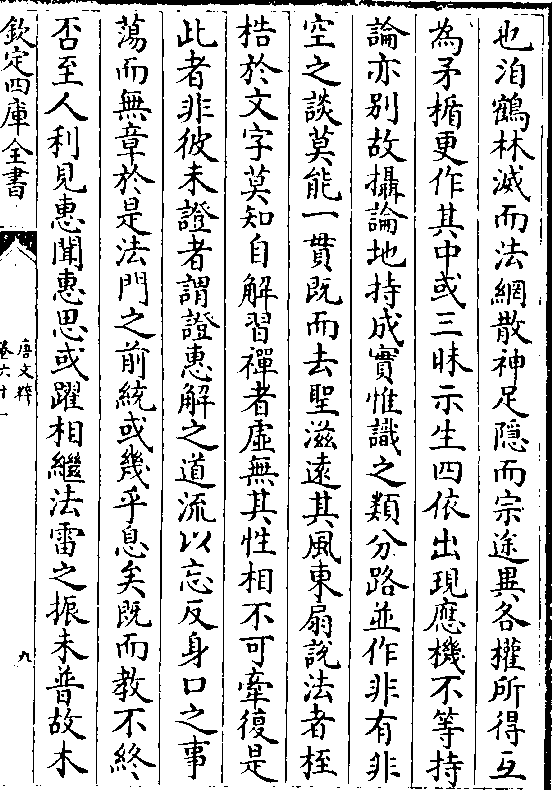 也洎鶴林滅而法網散神足隱而宗途異各權所得互
為矛楯更作其中或三昧示生四依出現應機不等持
論亦別故攝論地持成實惟識之類分路並作非有非
空之談莫能一貫既而去聖滋遠其風東扇說法者桎
梏於文字莫知自解習禪者虛無其性相不可牽復是
此者非彼未證者謂證惠解之道流以忘反身口之事
蕩而無章於是法門之前統或幾乎息矣既而教不終
否至人利見惠聞惠思或躍相繼法雷之振未普故木
欽定四庫全書
唐文粹
卷六十一
九